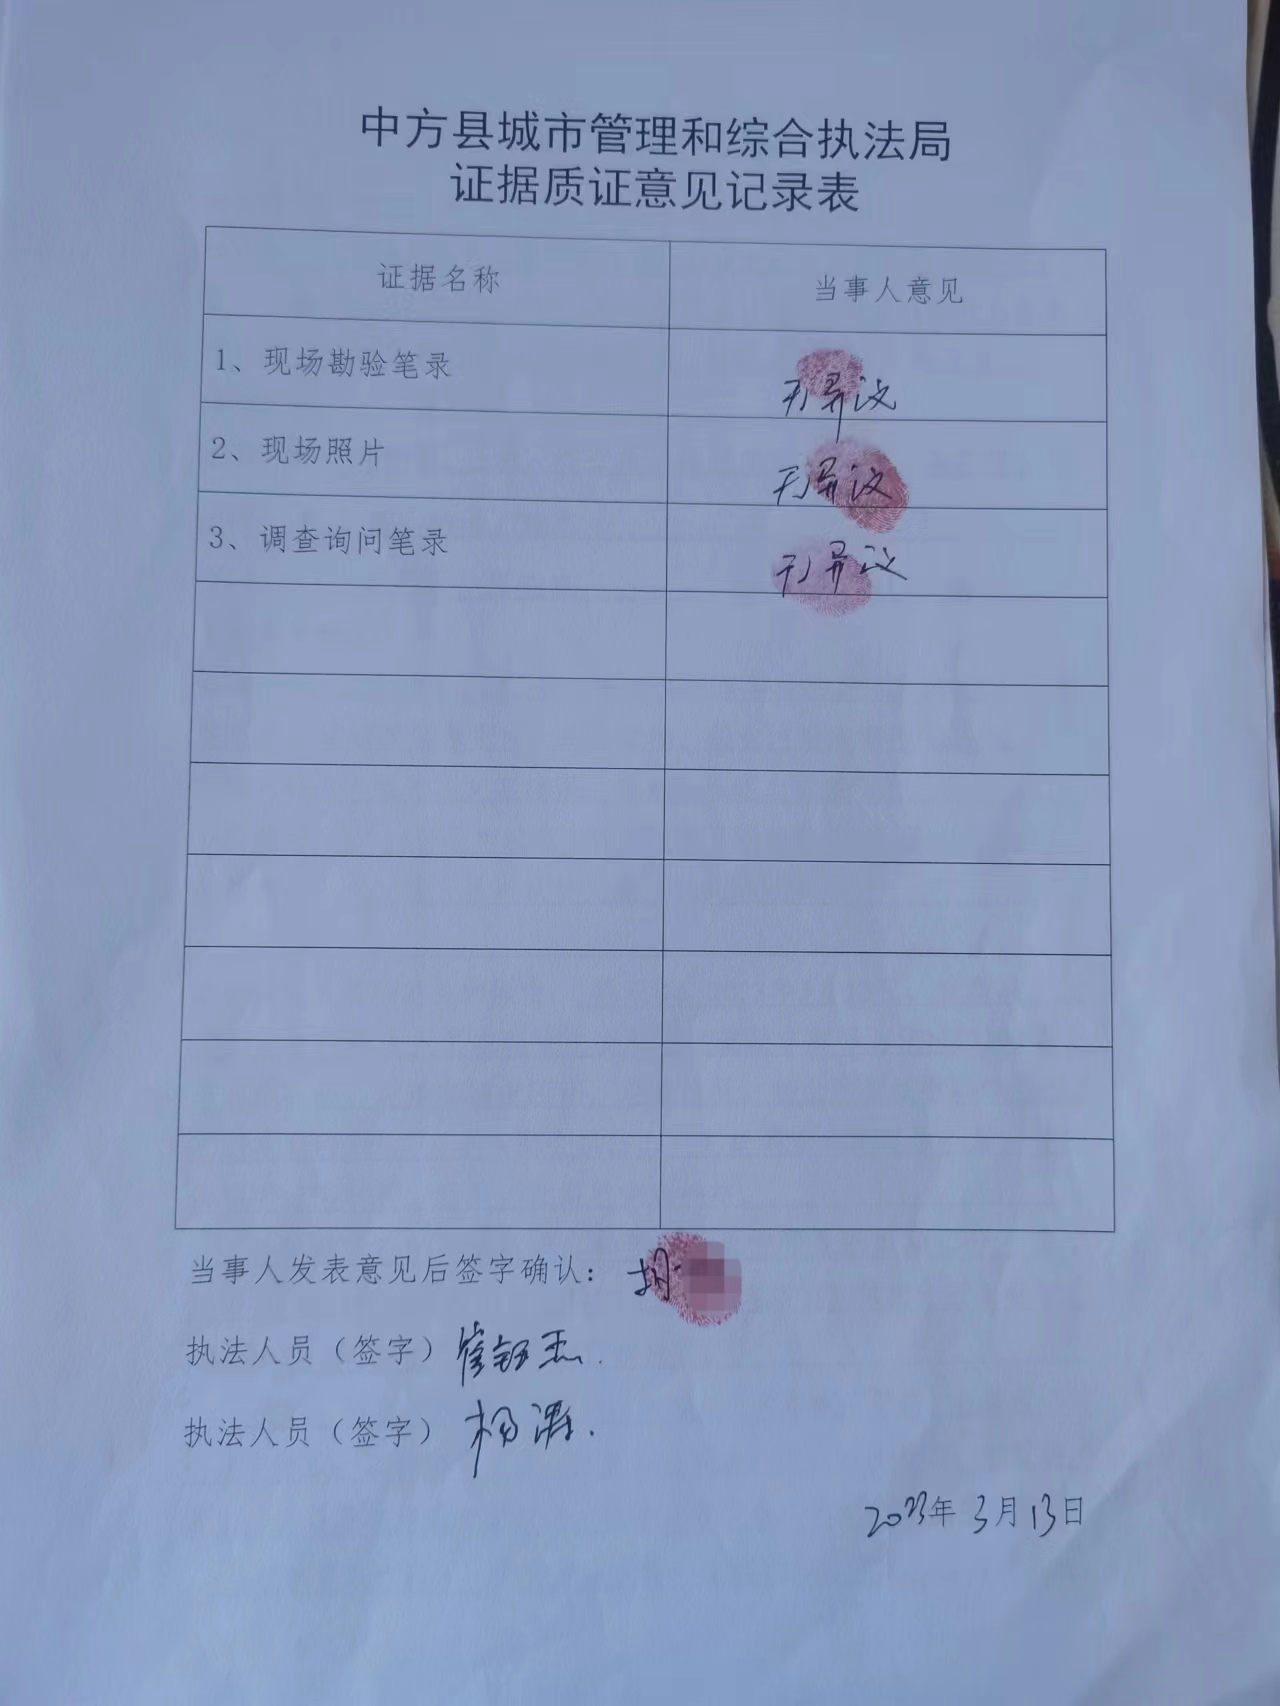 中方县城市管理和综合执法局
证据质证意见记录表
证据名称 当事人意见
1、现场勘验笔录 无异议
2、现场照片 无异议
3、调查询问笔录 无异议
当事人发表意见后签字确认：胡
执法人员（签字）崔钰杰.
执法人员（签字）杨潇.
2023年3月13日